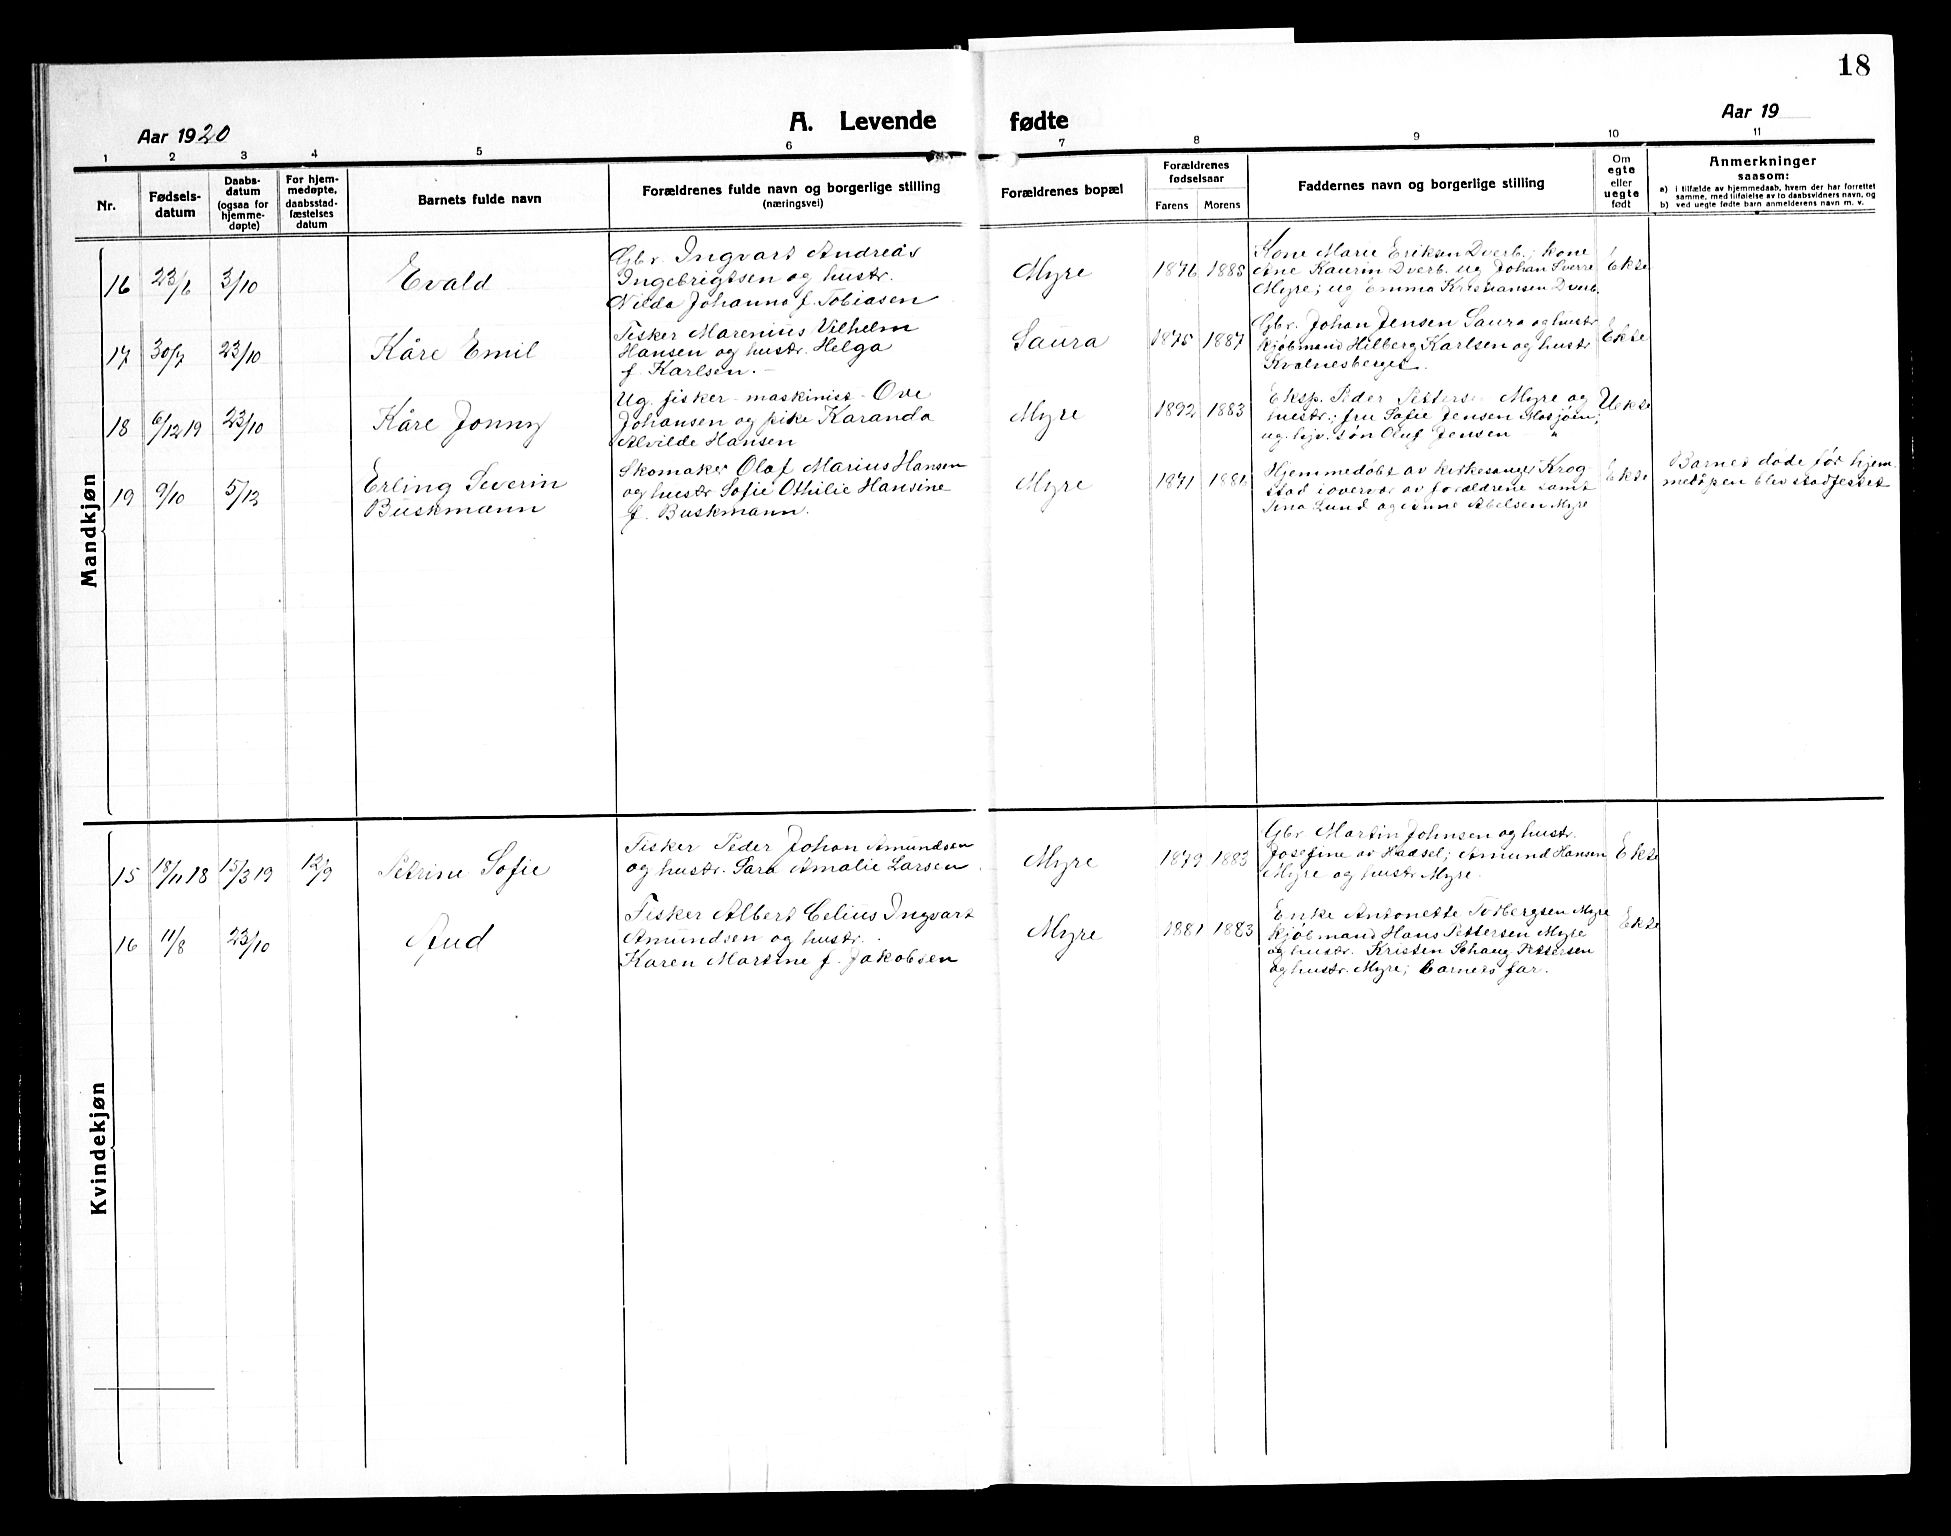 18
Aar 1920
A. Levende fødte
Aar 19
1 2 3 4 5 6 7 8 9 10 11
Nr.
Fødsels-
datum
Daabs-
datum
(ogsaa for
hjemme-
døpte)
For hjem-
medøpte,
daabsstad-
fæstelses
datum
Barnets fulde navn
Forældrenes fulde navn og borgerlige stilling
(næringsvei)
Forældrenes bopæl
Forældrenes
fødselsaar
Farens Morens
Faddernes navn og borgerlige stilling
Om
egte
eller
uegte
født
Anmerkninger
saasom:
a) i tilfælde av hjemmedaab, hvem der har forrettet
samme, med tilføielse av to daabsvidners navn, og
b) ved uegte fødte barn anmelderens navn m. v.
Mandkjøn
16 23/6 3/10 Evald
Gbr. Ingvart Andreas
Ingebrigtsen og hustr.
Nilda Johanna f. Tobiasen
Myre 1876 1885
Kone Marie Eriksen Dverb.; kone
Ane Kaurin Dverb. ug Johan Sverre
Myre; ug Emma Kristiansen Dverb.
Ekte
17 30/7 23/10 Kåre Emil
Fisker Marenius Vilhelm
Hansen og hustr. Helga
f. Karlsen.
Saura 1875 1887
Gbr. Johan Jensen Saura og hustr
kjøbmand Hilberg Karlsen og hustr
Kvalnesberget.
Ekte
18 6/12 19 23/10 Kåre Jonny
Ug. fisker - maskinist - Ove
Johansen og pike Karanda
Alvilde Hansen
Myre 1892 1883
Eksp. Peder Petterse Myre og
hustr.; fru Sofie Jensen
ug. søn Oluf Jensen "
Uekte
19 9/10 5/12 Erling Severin
Buskmann
Skomaker Olaf Marius Hansen
og hustr Sofie Othilie Hansine
f. Buskmann.
Myre 1871 1881
Hjemmedøbt av kirkesanger Krog
stad i overvær av forældrene samt
Tina Lund og Anne Abelsen Myre
Ekte
Barnet døde før hjem
medåpen blev stadfestet
Kvindekjøn
15 18/11 18 15/3 19 12/9 Petrine Sofie
Fisker Peder Johan Amundsen
og hustr. Sara Amalie Larsen
Myre 1879 1883
Gbr Martin Johnsen og hustr.
Josefine av Hadsel; Amund Hansen
Myre og hustr Myre.
Ekte
16 11/8 23/10 Aud
Fisker Albert Celius Ingvart
Amundsen og hustr.
Karen Martine f. Jakobsen
Myre 1881 1883
Enke Antonette Torbergsen Myre
kjøbmand Hans Pettersen Myre
og hustr. Kristen Schaug Pettersen
og hustr. Myre; barnets far.
Ekte